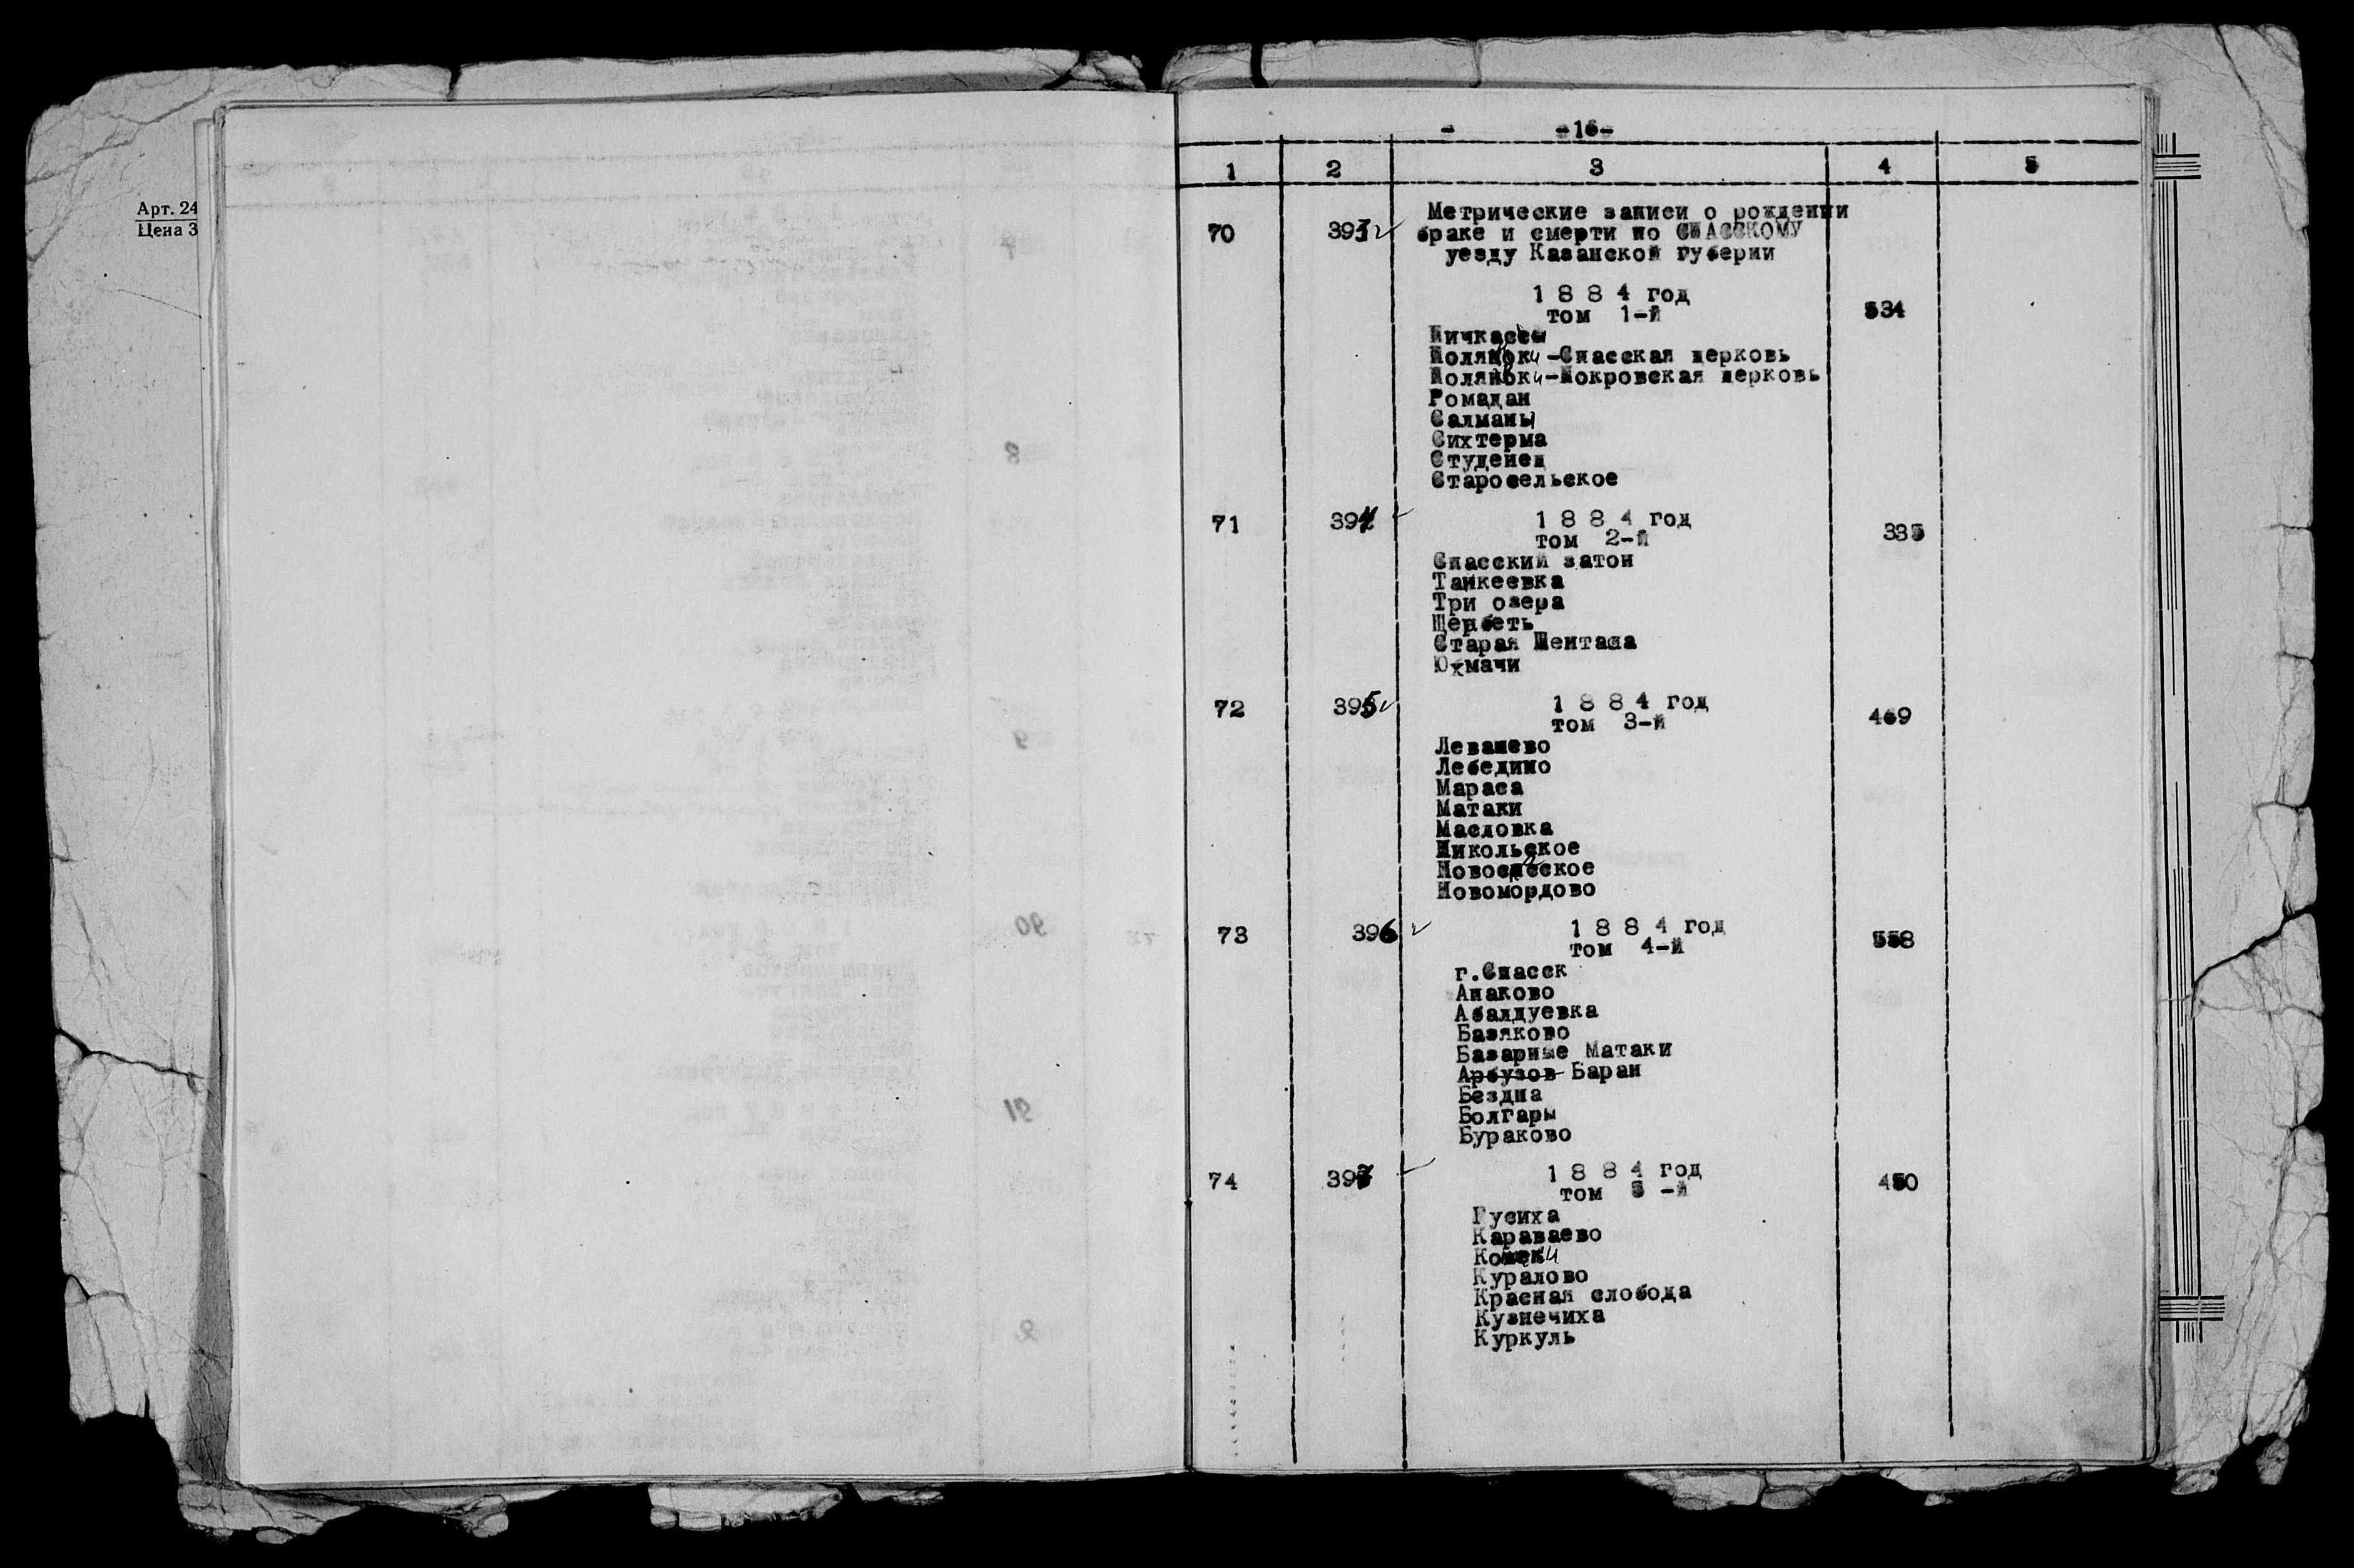 Арт. 24
Цена 3
-16-
1 2 3 4 5
Метрические записи о рождении
70 393 браке и смерти по СПАССКОМУ
уезду Казанской губернии
1884 год 534
том 1-й
Ничкассы
Полянки-Спасская церковь
Полянки-Покровская церковь
Ромадан
Салманы
Сихтерма
Студенец
Старосельское
71 394 1884 год 335
том 2-й
Спасский затон
Танкеевка
Три озера
Щербеть
Старая Шентала
Юхмачи
72 395 1884 год 469
том 3-й
Левашево
Лебедино
Мараса
Матаки
Масловка
Никольское
Новоспасское
Новомордово
73 396 1884 год 558
том 4-й
г.Спасск
Анаково
Абалдуевка
Базяково
Базарные Матаки
Арбузов Баран
Бездна
Болгары
Бураково
74 397 1884 год 450
том 5-й
Гусиха
Караваево
Кошки
Куралово
Красная слобода
Кузнечиха
Куркуль